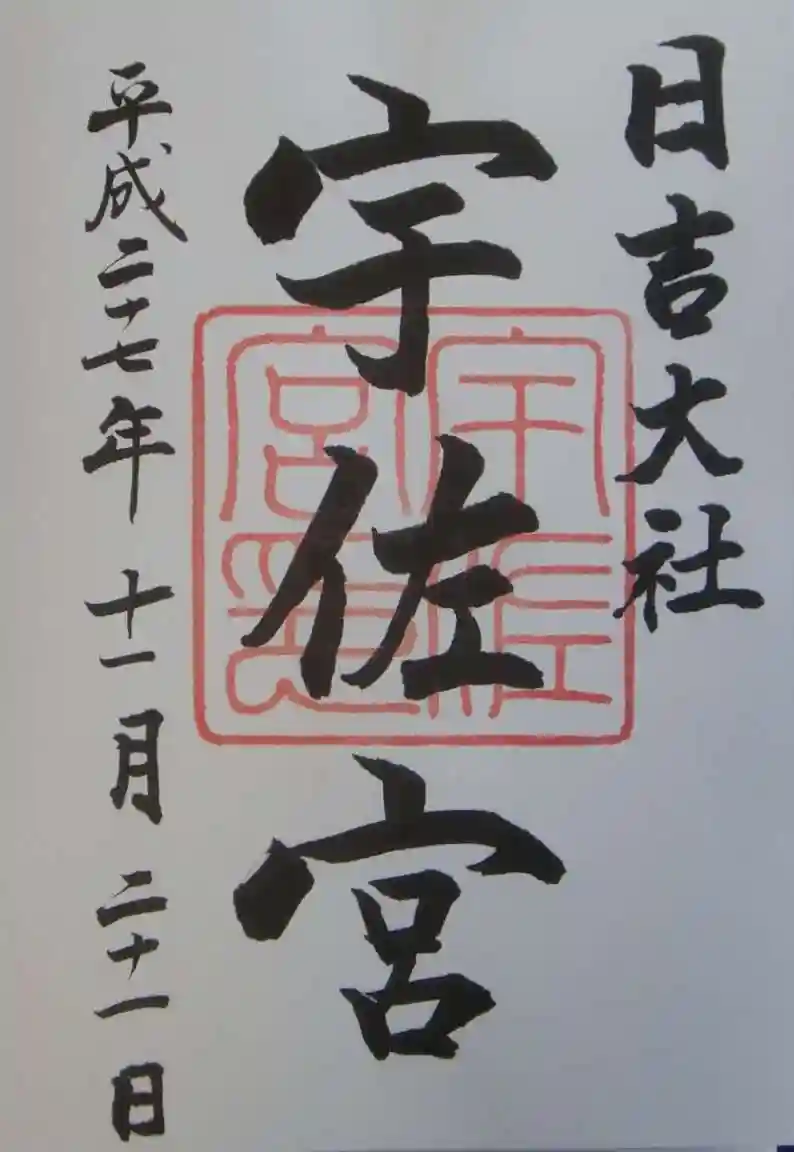 日吉大社
宇佐宮
宇佐宮印
平成二十七年十一月二十一日